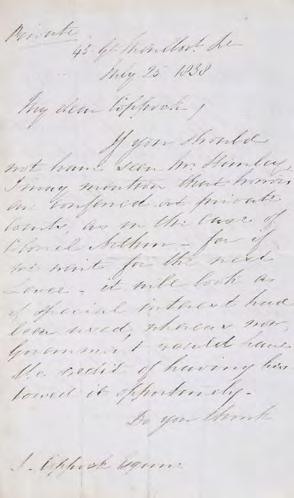 Private
45 Gt Portland St
May 25 1838
My dear Coppock,
If you should
not have seen Mr. Stanley,
I may mention that honors
are conferred at private
Courts, as in the case of
Colonel Arthur - for if
we wait for the next
Levee - it will look as
if special interest had
been used, whereas now,
Government would have
the credit of having bes
towed it opportunely.
Do you think
J. Coppock Esquire